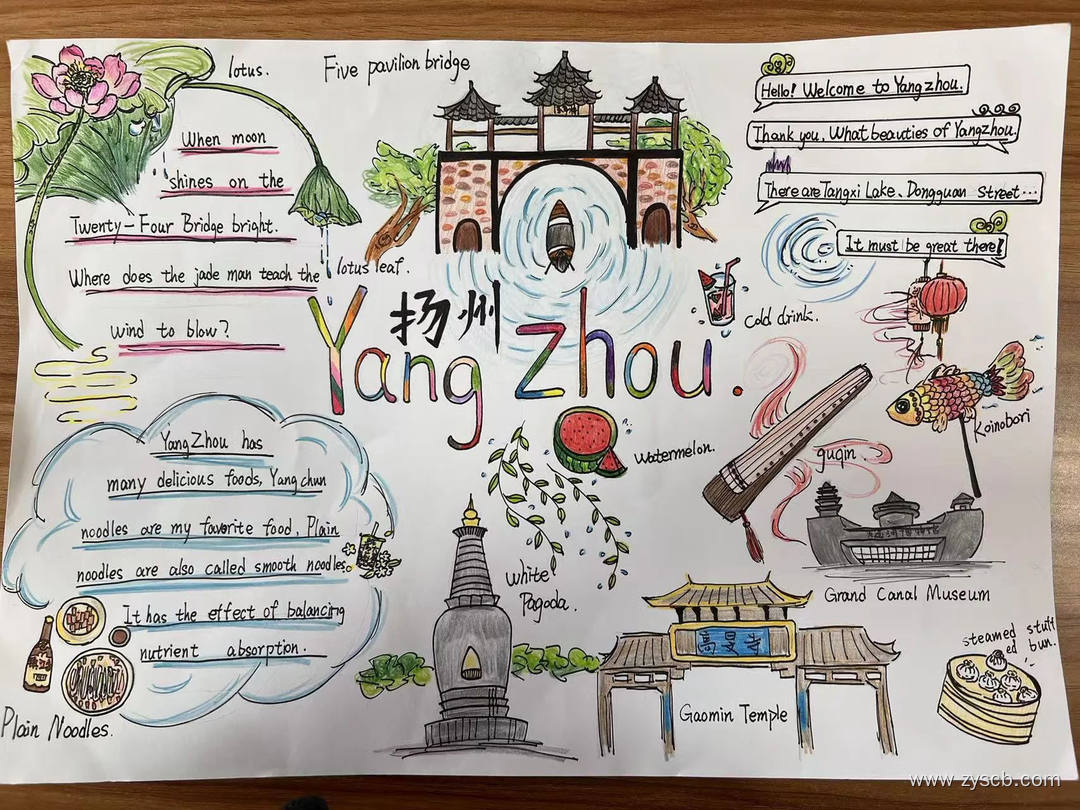 lotus.
Five pavilion bridge
Hello! Welcome to Yangzhou.
Thank you, What beauties of Yangzhou.
There are Tangxi Lake. Dongguan Street...
It must be great there!
When moon
shines on the
Twenty-Four Bridge bright.
Where does the jade man teach the
wind to blow?
lotus leaf.
扬州
Yang zhou.
cold drink.
Koinobori
watermelon.
guqin
YangZhou has
many delicious foods, Yangchun
noodles are my favorite food. Plain
noodles are also called smooth noodles.
It has the effect of balancing
nutrient absorption.
Plain Noodles.
White
Pagoda.
Grand Canal Museum
高旻寺
Gaomin Temple
steamed stuff
ed bun.
www.zyscb.com